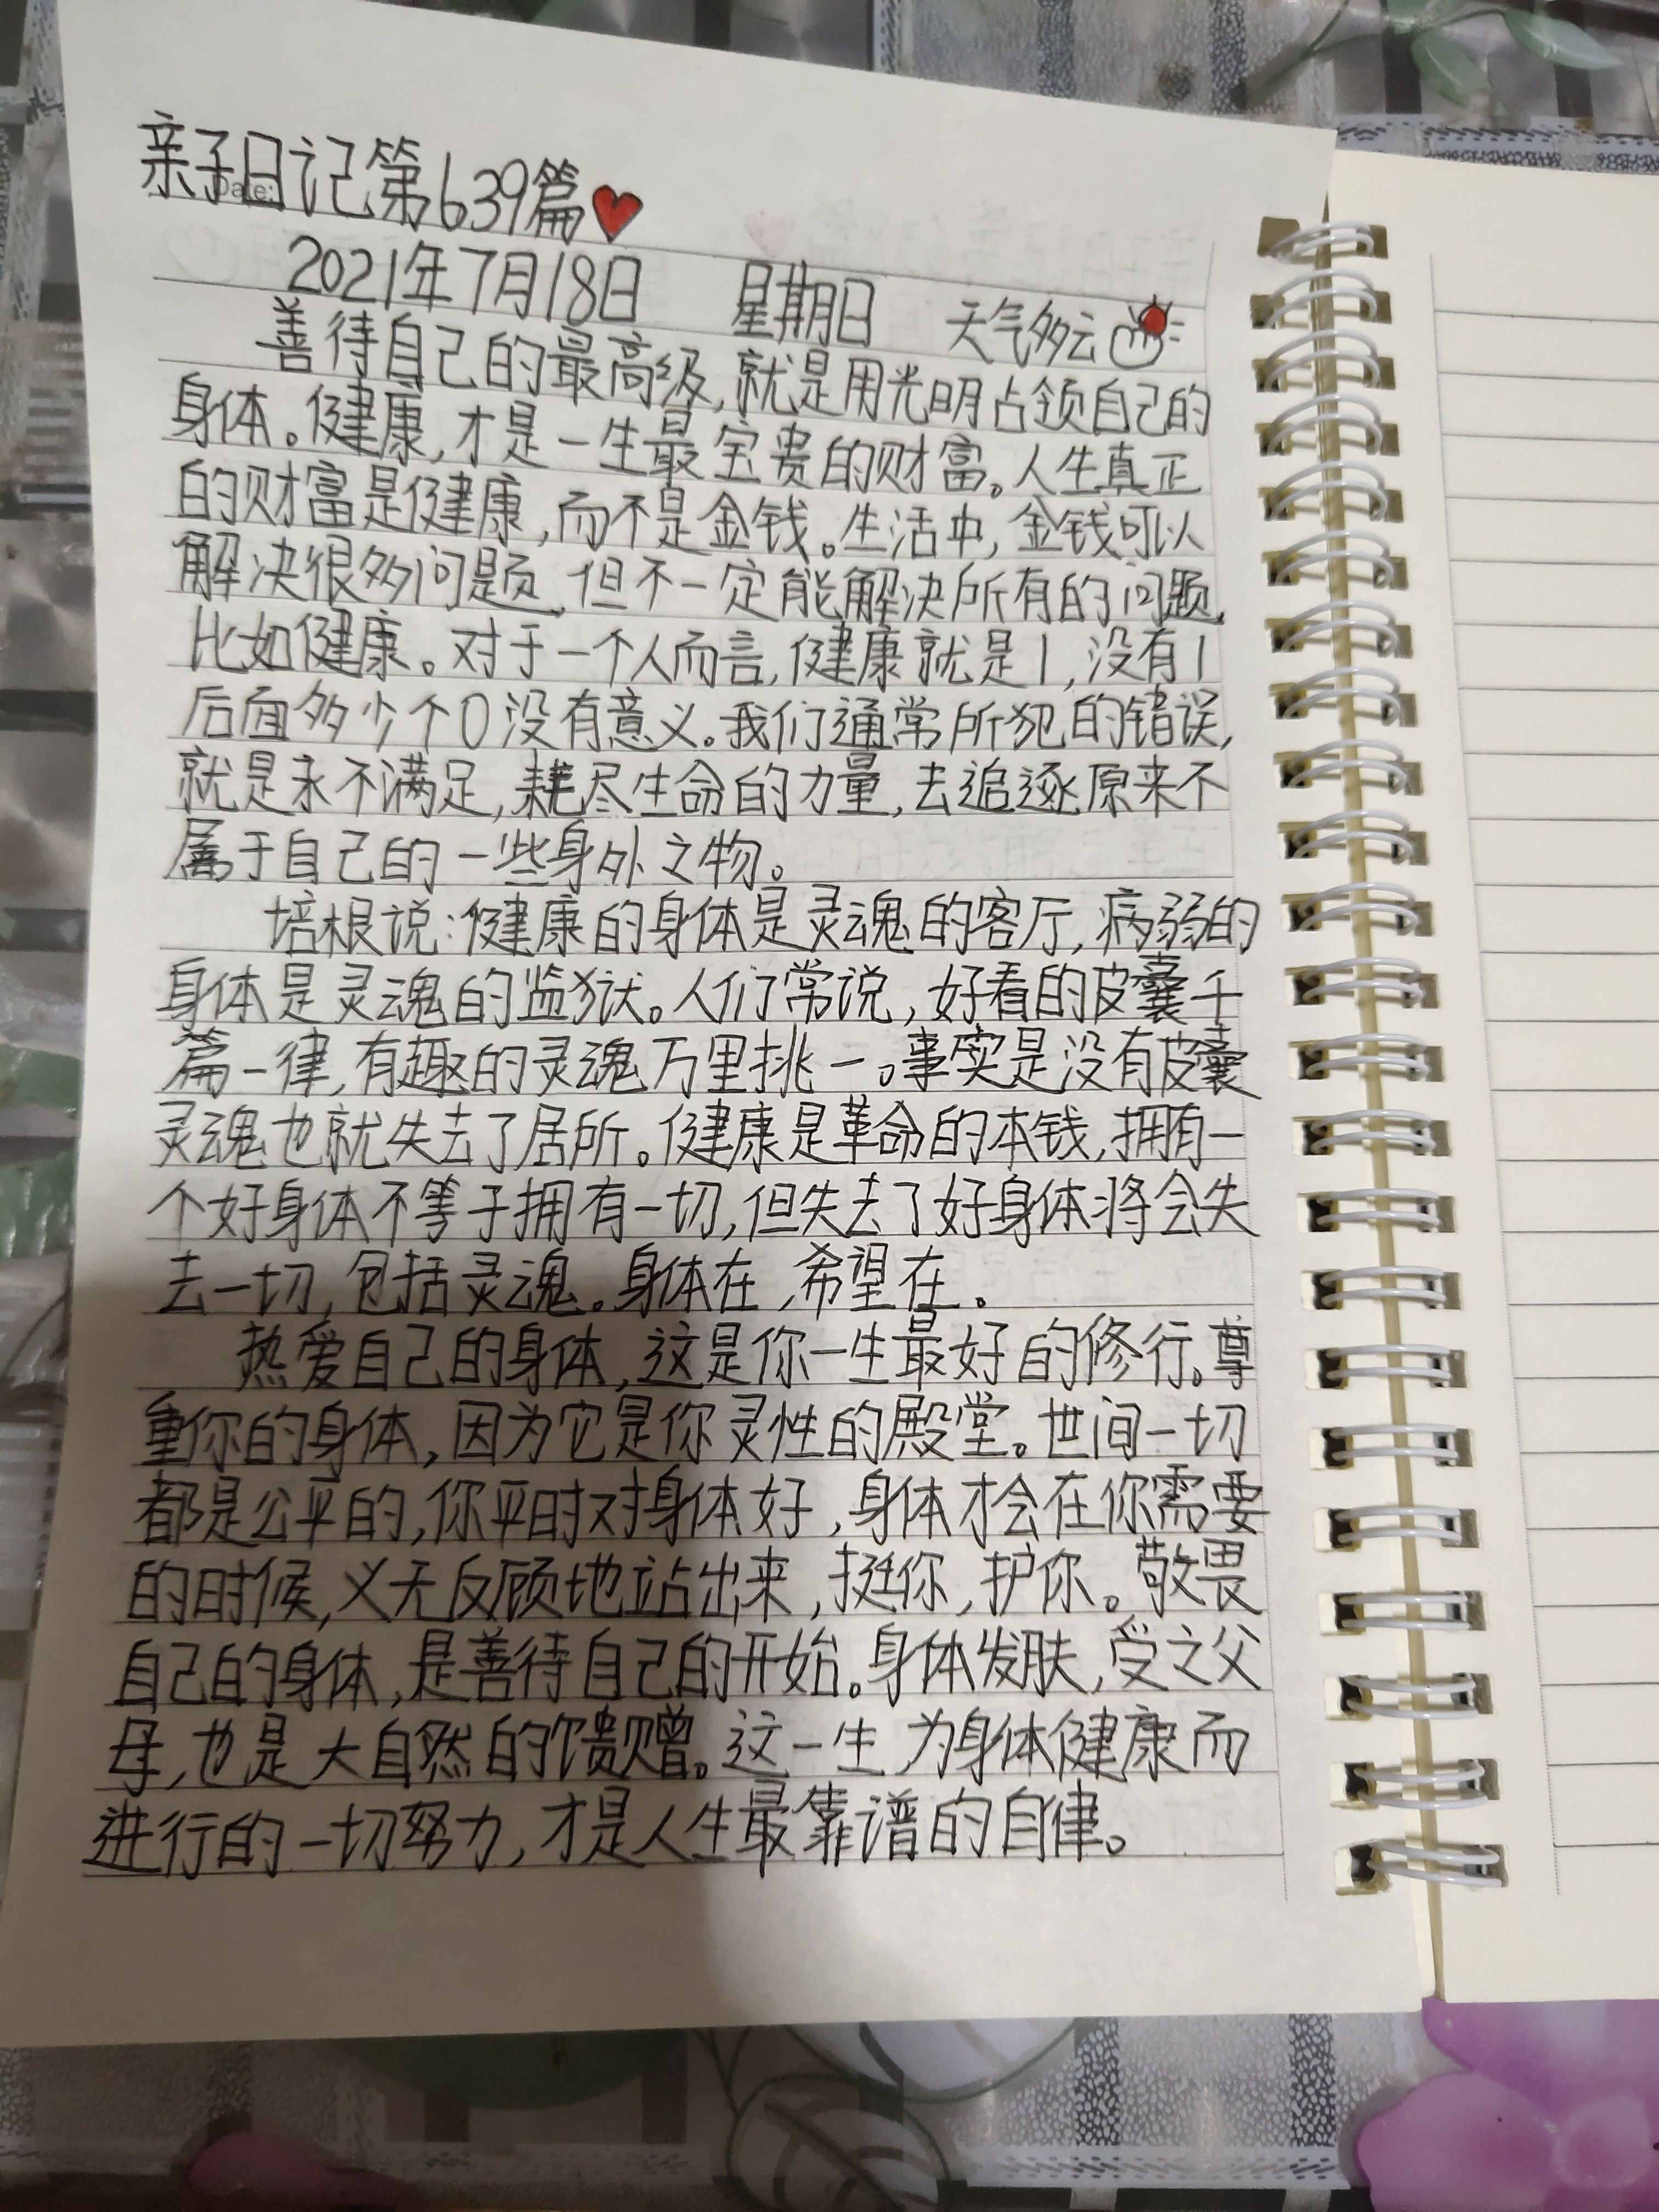 亲子日记第639篇
Date:
2021年7月18日 星期日 天气多云
善待自己的最高级,就是用光明占领自己的
身体。健康,才是一生最宝贵的财富。人生真正
的财富是健康,而不是金钱。生活中,金钱可以
解决很多问题,但不一定能解决所有的问题,
比如健康。对于一个人而言,健康就是1,没有1
后面多少个0没有意义。我们通常所犯的错误,
就是永不满足,耗尽生命的力量,去追逐原来不
属于自己的一些身外之物。
培根说:健康的身体是灵魂的客厅,病弱的
身体是灵魂的监狱。人们常说,好看的皮囊千
篇一律,有趣的灵魂万里挑一。事实是没有皮囊
灵魂也就失去了居所。健康是革命的本钱,拥有一
个好身体不等于拥有一切,但失去了好身体将会失
去一切,包括灵魂。身体在,希望在。
热爱自己的身体,这是你一生最好的修行。尊
重你的身体,因为它是你灵性的殿堂。世间一切
都是公平的,你平时对身体好,身体才会在你需要
的时候,义无反顾地站出来,挺你,护你。敬畏
自己的身体,是善待自己的开始。身体发肤,受之父
母,也是大自然的馈赠。这一生,为身体健康而
进行的一切努力,才是人生最靠谱的自律。